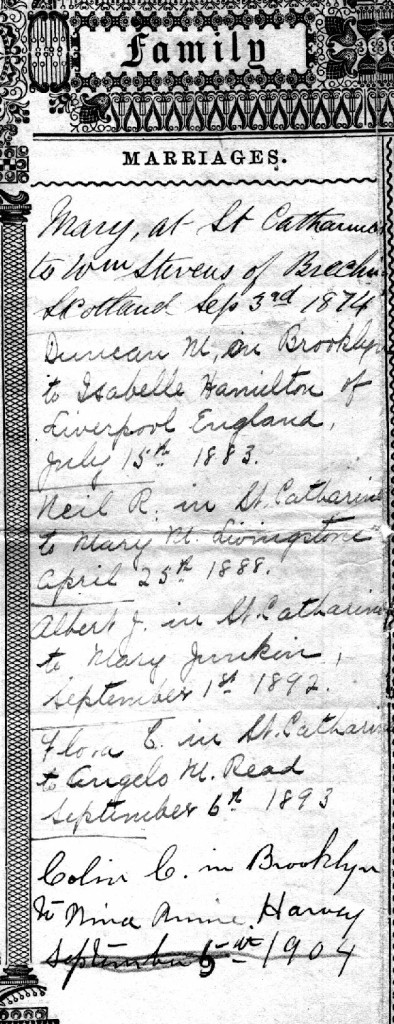 Family
MARRIAGES.
Mary, at St Catharines
to Wm Stevens of Brechin
Scotland Sep 3rd 1874
Duncan M, in Brooklyn
to Isabelle Hamilton of
Liverpool England,
July 15th 1883.
Neil R. in St. Catharin
to Mary M. Livingstone
April 25th 1888.
Albert J. in St. Catharin
to Mary Junkin,
September 1st 1892.
Flora C. in St. Catharin
to Angelo M. Read
September 6th 1893
Colin C. in Brooklyn
to Nina Annie Harvey
September 5th 1904